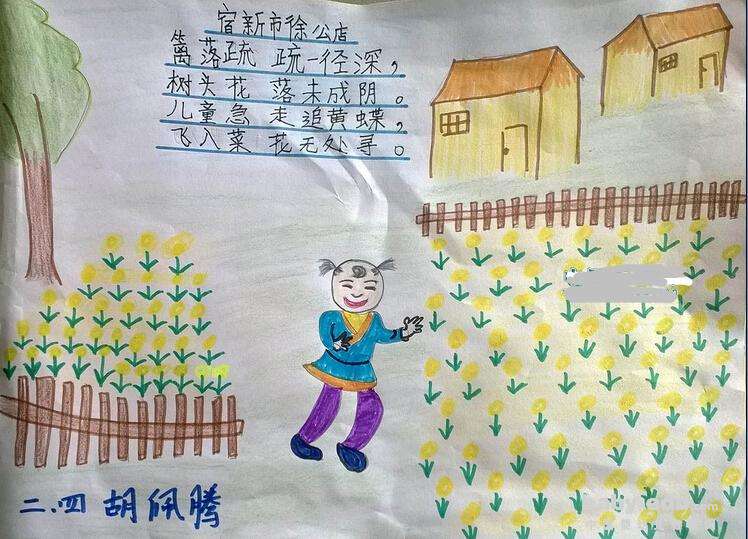 宿新市徐公店
篱落疏疏一径深，
树头花落未成阴。
儿童急走追黄蝶，
飞入菜花无处寻。
二.四 胡佩腾